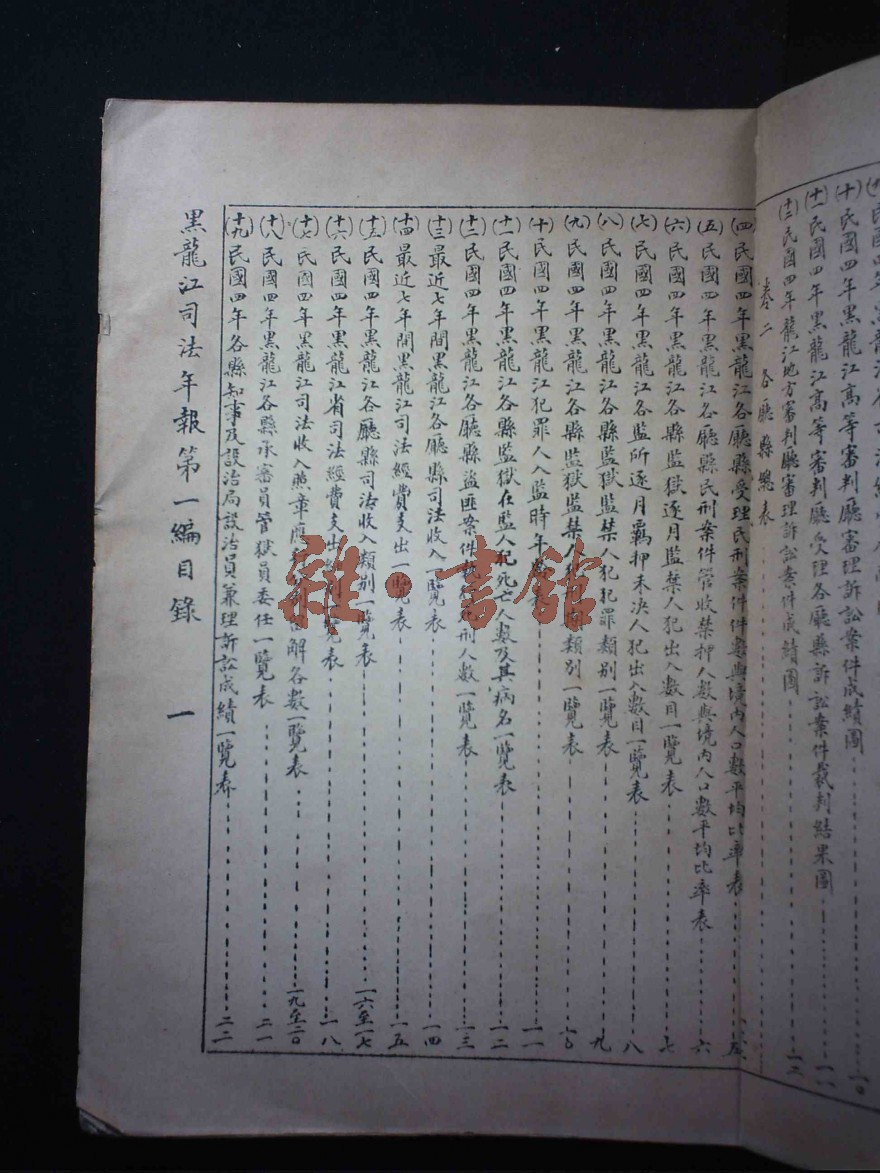 (十)民國四年黑龍江高等審判廳審理訴訟案件成績圖 一〇
(十一)民國四年黑龍江高等審判廳受理各廳縣訴訟案件裁判結果圖 一一
(十二)民國四年龍江地方審判廳審理訴訟案件成績圖 一二
卷二 各廳縣總表
(四)民國四年黑龍江各廳縣受理民刑案件件數與境內人口數平均比率表
(五)民國四年黑龍江各廳縣民刑案件管收禁押人數與境內人口數平均比率表 六
(六)民國四年黑龍江各縣監獄逐月監禁人犯出入數目一覽表 七
(七)民國四年黑龍江各監所逐月羈押未決人犯出入數目一覽表 八
(八)民國四年黑龍江各縣監獄監禁人犯犯罪類別一覽表 九
(九)民國四年黑龍江各縣監獄監禁人類別一覽表 一〇
(十)民國四年黑龍江犯罪人入監時年 一一
(十一)民國四年黑龍江各縣監獄在監人犯死亡人數及其病名一覽表 一二
(十二)民國四年黑龍江各廳縣盜匪案件刑人數一覽表 一三
(十三)最近七年間黑龍江各廳縣司法收入一覽表 一四
(十四)最近七年間黑龍江司法經費支出一覽表 一五
(十五)民國四年黑龍江各廳縣司法收入類別一覽表 一六至一七
(十六)民國四年黑龍江省司法經費支出覽表 一八
(十七)民國四年黑龍江司法收入照章應解各數一覽表 一九至二〇
(十八)民國四年黑龍江各縣承審員管獄員委任一覽表 二一
(十九)民國四年各縣知事及設治局設治員兼理訴訟成績一覽表 二二
黑龍江司法年報第一編目錄 一
雜·書館